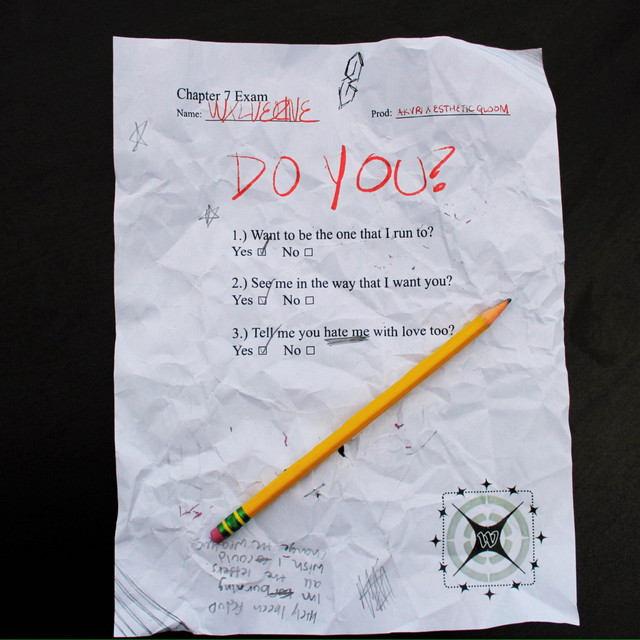 Chapter 7 Exam
Name: WXLVEØNE
Prod: AKVRI X ESTHETIC GLOOM
DO YOU?
1.) Want to be the one that I run to?
Yes ☑ No ☐
2.) See me in the way that I want you?
Yes ☑ No ☐
3.) Tell me you hate me with love too?
Yes ☑ No ☐
W
been
Im burning
all the letters
wish I could